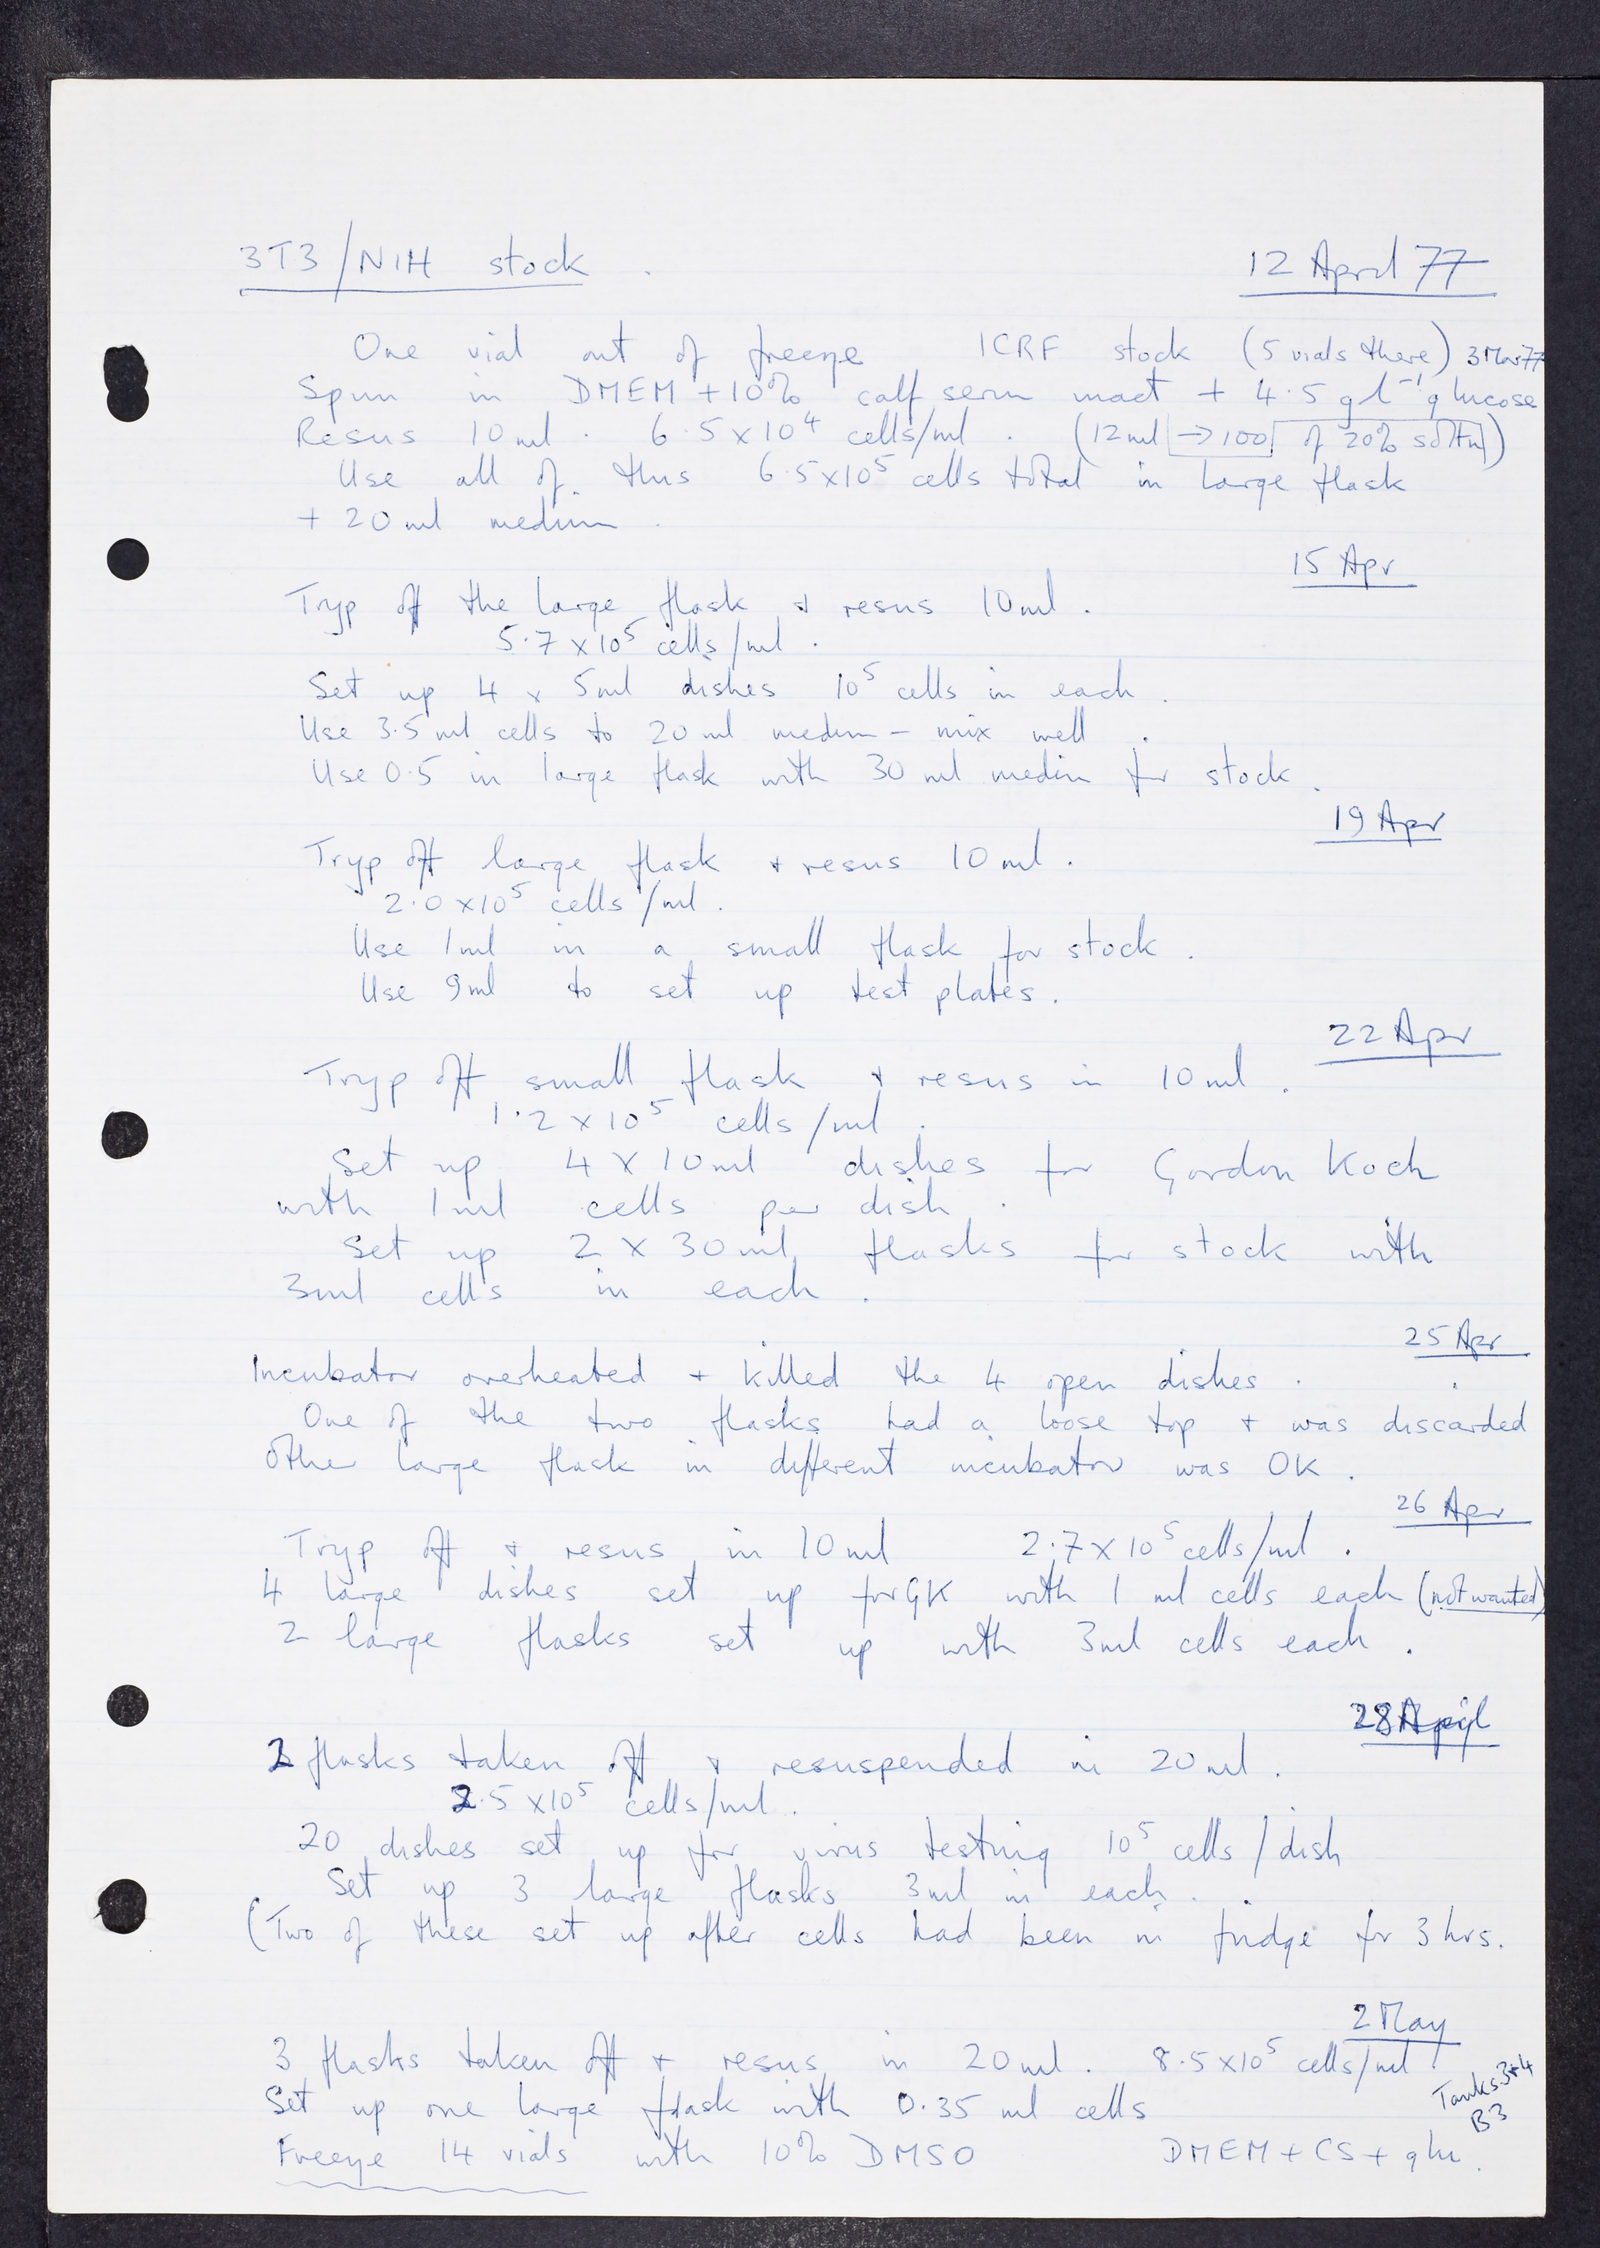 3T3/NIH stock . 12 April 77
One vial out of freeze ICRF stock (5 vials there) 3 Mar 77
Spun in DMEM + 10% calf serum inact + 4.5 g l⁻¹ glucose
Resus 10 ml . 6.5 x 10⁴ cells/ml . (12 ml → 100 of 20% soltn)
Use all of this 6.5 x 10⁵ cells total in large flask
+ 20 ml medium .
15 Apr
Tryp off the large flask & resus 10 ml .
5.7 x 10⁵ cells/ml .
Set up 4 x 5 ml dishes 10⁵ cells in each .
Use 3.5 ml cells to 20 ml medium – mix well .
Use 0.5 in large flask with 30 ml medium for stock .
19 Apr
Tryp off large flask & resus 10 ml .
2.0 x 10⁵ cells/ml .
Use 1 ml in a small flask for stock .
Use 9 ml to set up test plates .
22 Apr
Tryp off small flask & resus in 10 ml .
1.2 x 10⁵ cells/ml .
Set up 4 x 10 ml dishes for Gordon Koch
with 1 ml cells per dish .
Set up 2 x 30 ml flasks for stock with
3 ml cells in each .
25 Apr
Incubator overheated + killed the 4 open dishes .
One of the two flasks had a loose top + was discarded
Other large flask in different incubator was OK .
26 Apr
Tryp off & resus in 10 ml 2.7 x 10⁵ cells/ml .
4 large dishes set up for GK with 1 ml cells each (not wanted)
2 large flasks set up with 3 ml cells each .
28 April
2 flasks taken off & resuspended in 20 ml .
2.5 x 10⁵ cells/ml .
20 dishes set up for virus testing 10⁵ cells/dish
Set up 3 large flasks 3 ml in each .
(Two of these set up after cells had been in fridge for 3 hrs.
2 May
3 flasks taken off & resus in 20 ml . 8.5 x 10⁵ cells/ml
Set up one large flask with 0.35 ml cells
Tanks 3+4
B3
Freeze 14 vials with 10% DMSO DMEM + CS + glu .